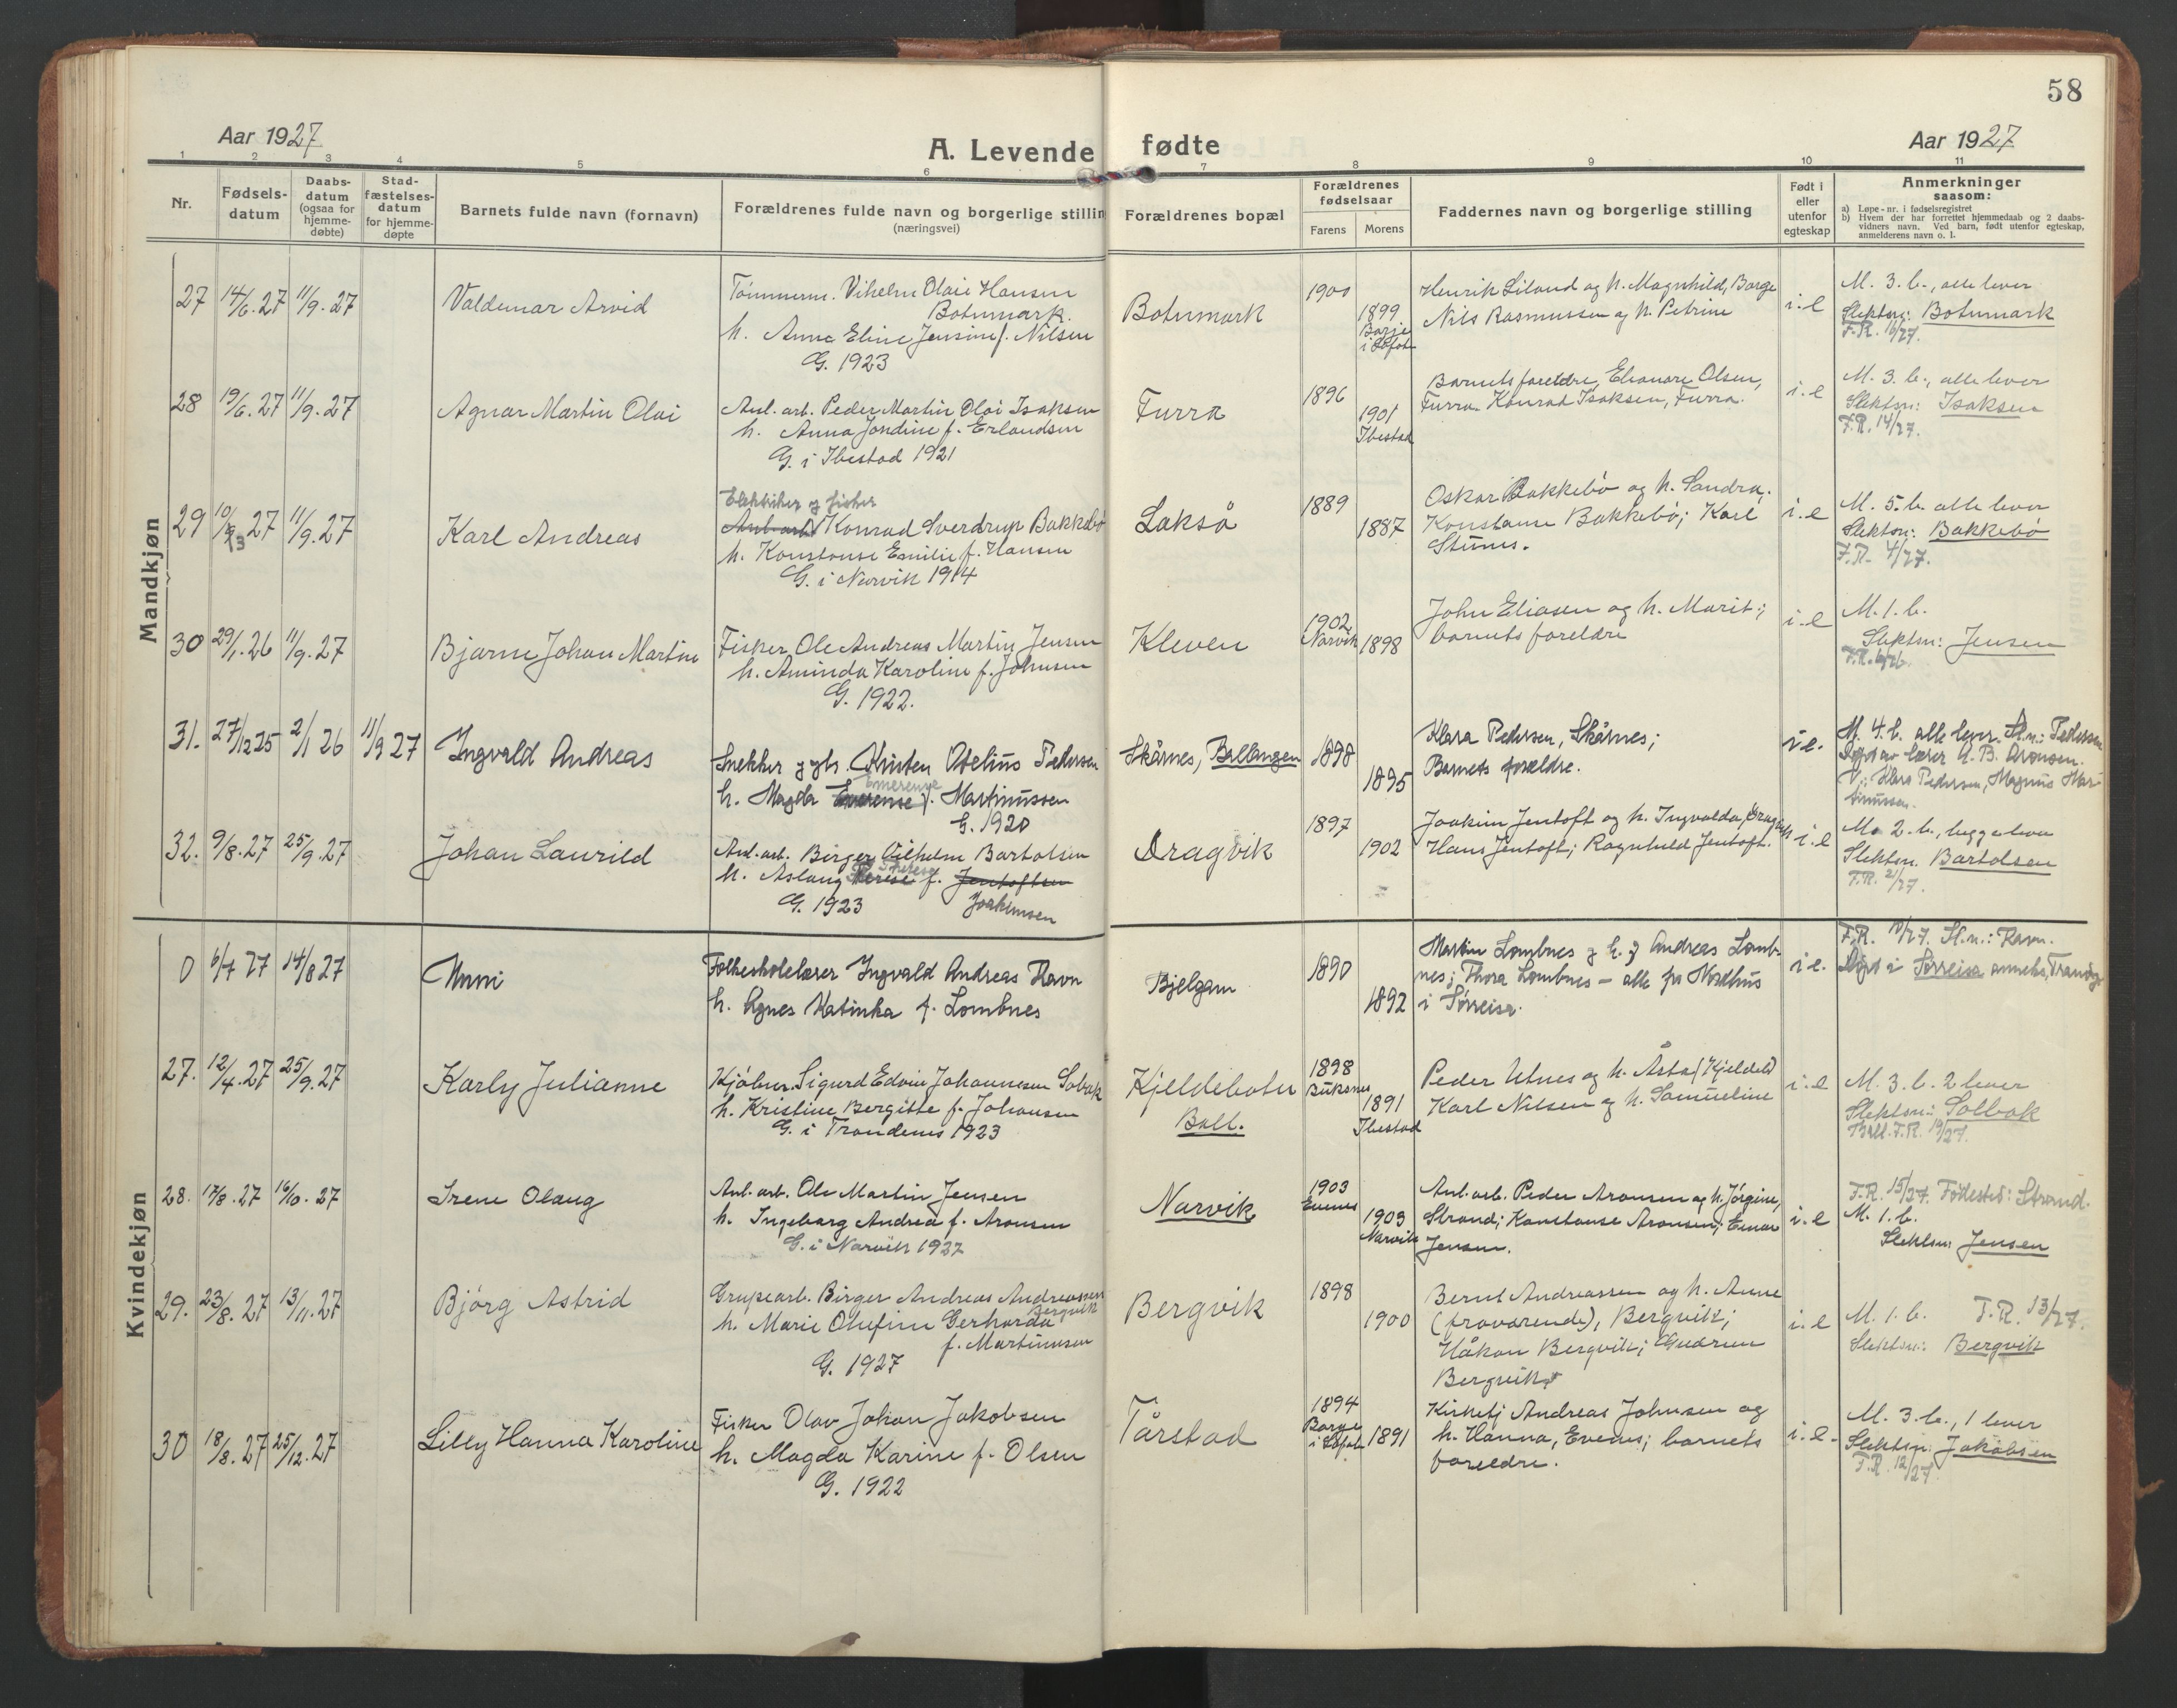 58
Aar 1927
A. Levende fødte
Aar 1927
1 2 3 4 5 6 7 8 9 10 11
Nr.
Fødsels-
datum
Daabs-
datum
(ogsaa for
hjemme-
døbte)
Stad-
fæstelses-
datum
for hjemme-
døpte
Barnets fulde navn (fornavn)
Forældrenes fulde navn og borgerlige stillin
(næringsvei)
Forældrenes bopæl
Forældrenes
fødselsaar
Farens
Morens
Faddernes navn og borgerlige stilling
Født i
eller
utenfor
egteskap
Anmerkninger
saasom:
a) Løpe-nr. i fødselsregistret
b) Hvem der har forrettet hjemmedaab og 2 daabs-
vidners navn. Ved barn, født utenfor egteskap,
anmelderens navn o. l.
Mandkjøn
27 14/6.27 11/9.27
Valdemar Arvid
Tömmerm. Vihelm Olaie Hansen
Botnmark.
h. Anna Eline Jensine f. Nilsen
G. 1923
Botnmark
1900
1899
Borge
i Lofot
Henrik Liland og h. Magnhild, Borge
Nils Rasmussen og h. Petrine
i.e
M. 3. b., alle lever
Slektsn: Botnmark
F.R. 16/27.
28 19/6.27 11/9.27
Agnar Martin Olai
Anl. arb. Peder Martin Olai Isaksen
h. Anna Jondine f. Erlandsen
G. i Ibestad 1921
Furra
1896
1901
Ibestad
Barnets foreldre, Eleonore Olsen,
Furra. Konrad Isaksen, Furra.
i.e
M. 3. b., alle lever
Slektsn: Isaksen
F.R. 14/27.
29 10/3 27 11/9.27
Karl Andreas
Elektriker og fisker
Anl. arb. Konrad Sverdrup Bakkebø
h. Konstanse Emilie f. Hansen
G. i Narvik 1914
Lakså
1889
1887
Oskar Bakkebö og h. Sandra;
Konstanse Bakkebö; Karl
i.e
M. 5. b. alle lever
Slektsn: Bakkebö
F.R. 4/27.
30 29/1.26 11/9.27
Bjarne Johan Martin
Fisker Ole Andreas Martin Jensen
h. Aminda Karoline f. Johnsen
G. 1922.
Kleven
1902
Narvik
1898
John Eliasen og h. Marit;
barnets foreldre
i.e
M. 1. b.
Slektsn: Jensen
F.R. 6/26.
31. 27/12 25 2/1 26 11/9 27
Ingvald Andreas
Snekker og gbr. Kristen Otelius Pedersen
h. Magda Emerense f. Martinussen
G. 1920
Skårnes, Ballangen
1898
1895
Klara Pedersen, Skårnes;
Barnets forældre.
i e.
M. 4. b. alle lever. Sl.n.: Pedersen
Døpt av lærer A. B. Aronsen.
V.: Klara Pedersen, Magnus Mar-
tinussen.
32. 9/8.27 25/9.27
Johan Laurild
Anl. arb. Birger Vilhelm Bartolsen
h. Aslaug Therese f. Jentoftsen
G. 1923 Joakimsen
Dragvik
1897
1902
Joakim Jentoft og h. Ingvalda, Dragvik
Hans Jentoft; Ragnhild Jentoft.
i.e
M. 2. b., begge lever
Slektsn. Bartolsen
F.R. 21/27.
Kvindekjøn
0 6/7 27 14/8 27
Unni
Folkeskolelærer Ingvald Andreas Ravn
h. Agnes Katinka f. Lombnes
Bjelgam
1890
1892
Martin Lombnes og h. og Andreas Lomb-
nes; Thora Lombnes - alle fra Nordhus
i Sørreisa.
i e.
F.R. 10/27. Sl.n.: Ravn.
Døpt i Sørreisa anneks, Tranøy
27. 12/4.27 25/9.27
Karly Julianne
Kjøbm. Sigurd Edvin Johannesen Solbak
h. Kristine Bergitte f. Johansen
G. i Trondenes 1923
Kjeldebotn
Ball.
1898
Buksnes
1891
Ibestad
Peder Utnes og h. Åsta (Kjeldeb)
Karl Nilsen og h. Samueline
i.e
M. 3. b. 2 lever
Slektsn: Solbak
Ball. F.R. 19/27.
28. 17/8.27 16/10.27
Irene Olaug
Anl. arb. Ole Martin Jensen
h. Ingeborg Andrea f. Aronsen
G. i Narvik 1927
Narvik
1903
Evenes
1903
Narvik
Anl. arb. Peder Aronsen og h. Jörgine,
Strand; Konstanse Aronsen; Einar
Jensen.
i.e
F.R. 15/27. Fødested: Strand.
M. 1. b.
Slektsn: Jensen
29. 23/8.27 13/11.27
Björg Astrid
Grupearb. Birger Andreas Andreassen
Bergvik
h. Marie Olufine Gerharda
f. Martinusen
G. 1927
Bergvik
1898
1900
Bernt Andreassen og h. Anne
(fraværende), Bergvik;
Håkon Bergvik; Gudrun
Bergvik
i.e
M. 1. b. F.R. 13/27.
Slektsn: Bergvik
30 18/8.27 25/12.27
Lilly Hanna Karoline
Fisker Olav Johan Jakobsen
h. Magda Karine f. Olsen
G. 1922
Tårstad
1894
Borge
i Lofot
1891
Kirketj Andreas Johnsen og
h. Hanna, Evenes; barnets
foreldre.
i.e.
M. 3. b., 1 lever
Slektsn: Jakobsen
F.R. 12/27.